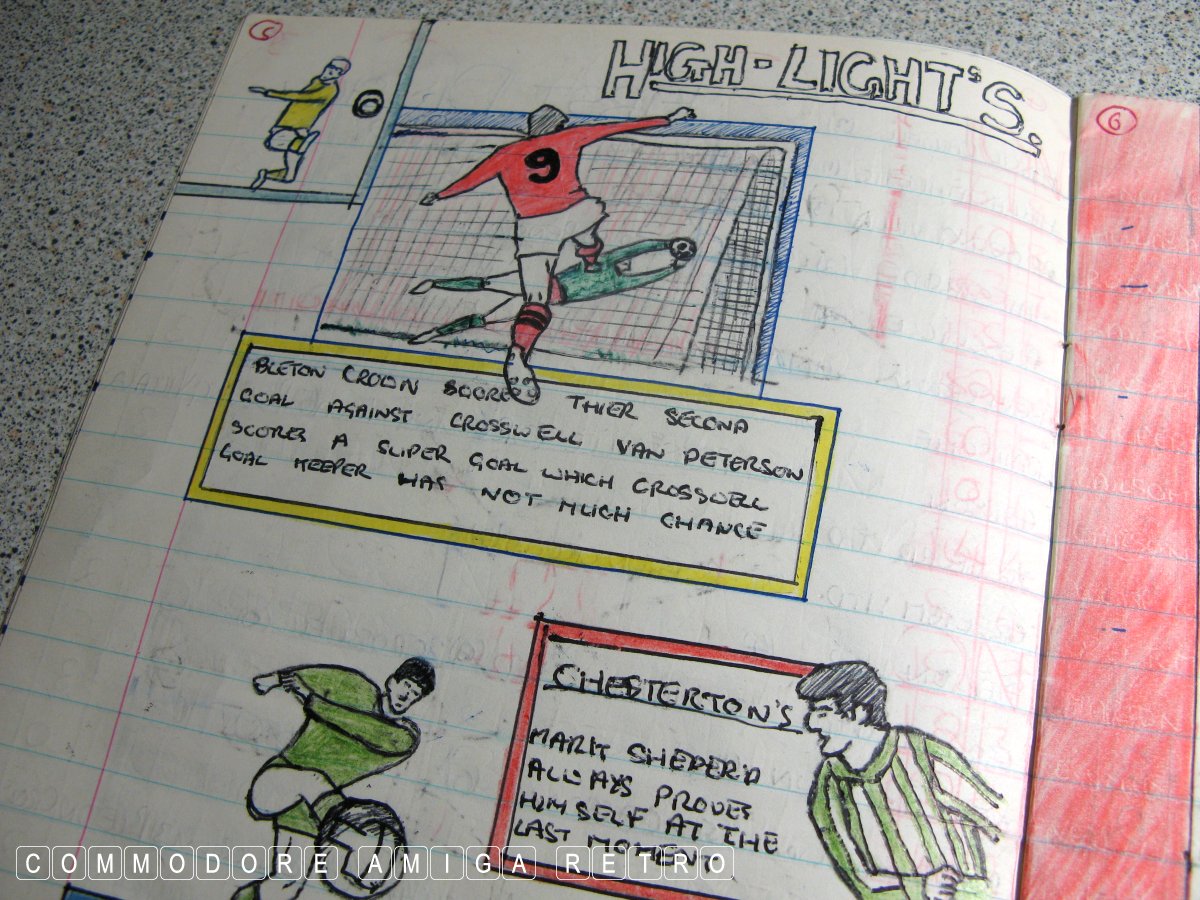 5
HIGH-LIGHT'S.
6
9
BLETON CROWN SCORES THIER SECOND
GOAL AGAINST CROSSWELL VAN PETERSON
SCORES A SUPER GOAL WHICH CROSSWELL
GOAL KEEPER HAS NOT MUCH CHANCE
CHESTERTON'S
MARK SHEPERD
ALLAYS PROVES
HIMSELF AT THE
LAST MOMENT
COMMODORE AMIGA RETRO